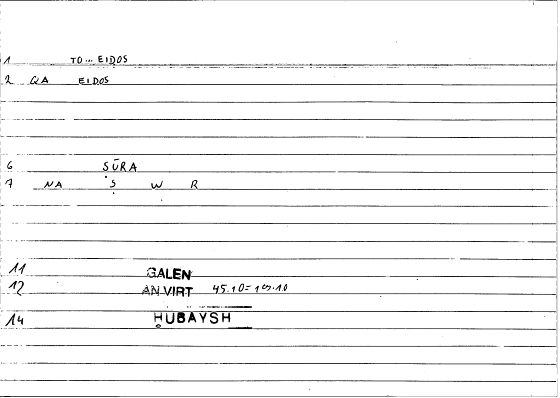 1 TO... EIDOS
2 QA EIDOS
6 SŪRA
7 NA Ṣ W R
11 GALEN
12 AN.VIRT 45.10=
14 ḤUBAYSH